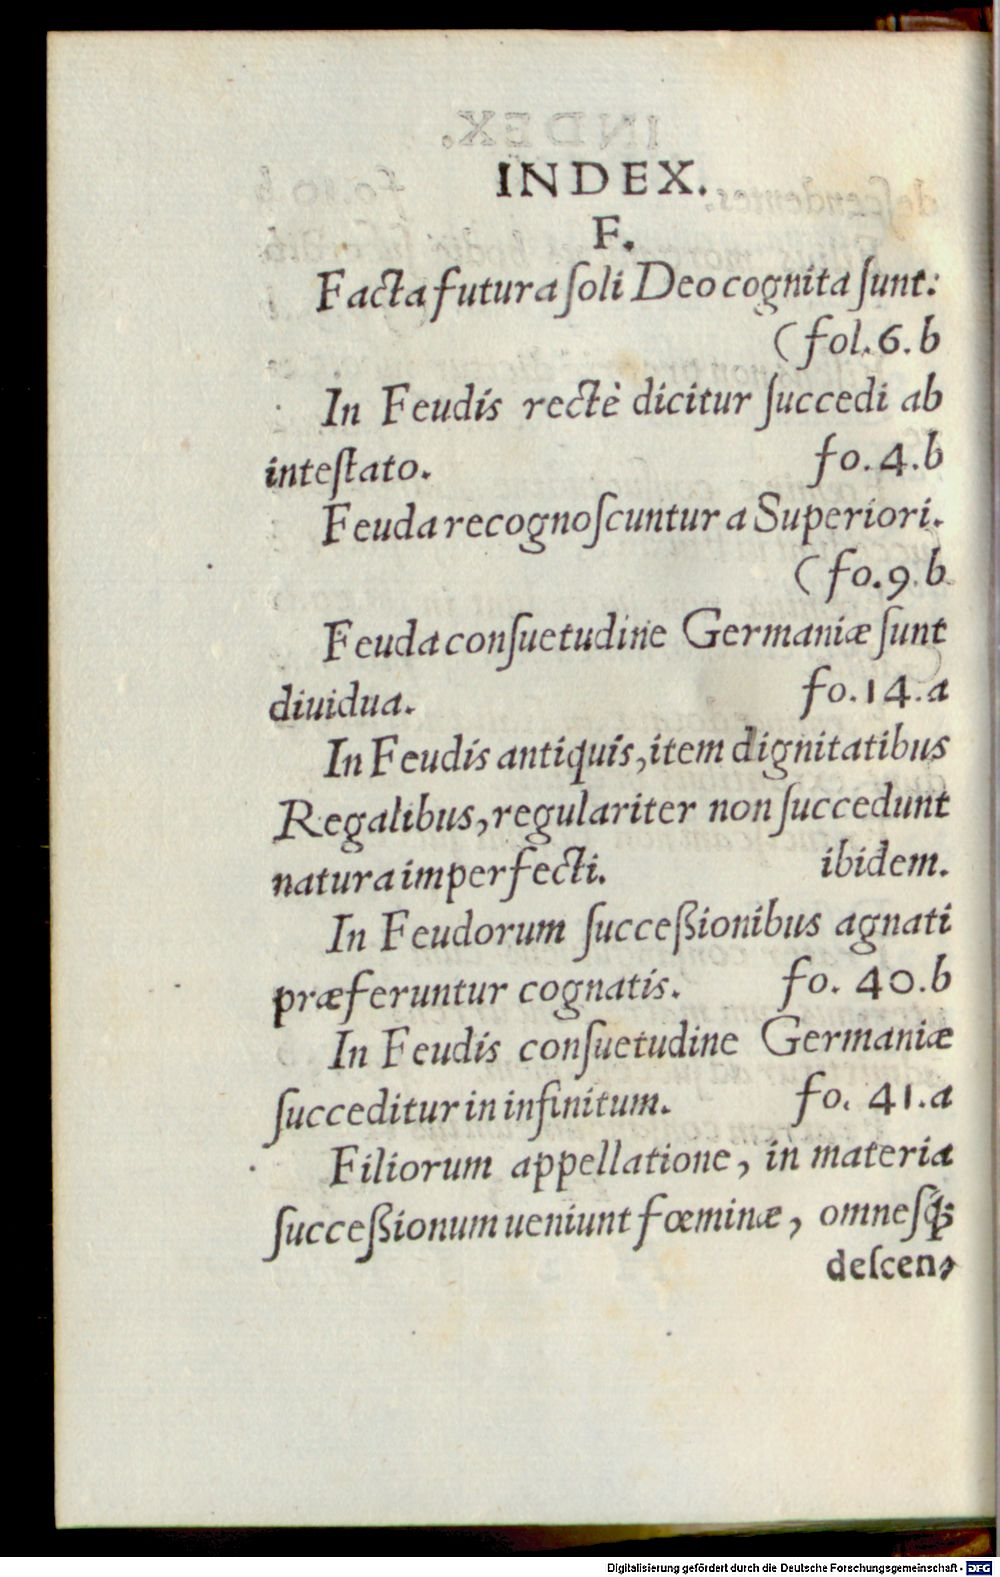 INDEX.
F.
Facta futura ſoli Deo cognita ſunt:
(fol. 6. b
In Feudis rectè dicitur ſuccedi ab
inteſtato. fo. 4. b
Feuda recognoſcuntur a Superiori.
(fo. 9. b
Feuda conſuetudine Germaniæ ſunt
diuidua. fo. 14. a
In Feudis antiquis, item dignitatibus
Regalibus, regulariter non ſuccedunt
natura imperfecti. ibidem.
In Feudorum ſucceßionibus agnati
præferuntur cognatis. fo. 40. b
In Feudis conſuetudine Germaniæ
ſucceditur in infinitum. fo. 41. a
Filiorum appellatione, in materia
ſucceßionum ueniunt fœminæ, omneſq́;
deſcen,
Digitalisierung gefördert durch die Deutsche Forschungsgemeinschaft - DFG